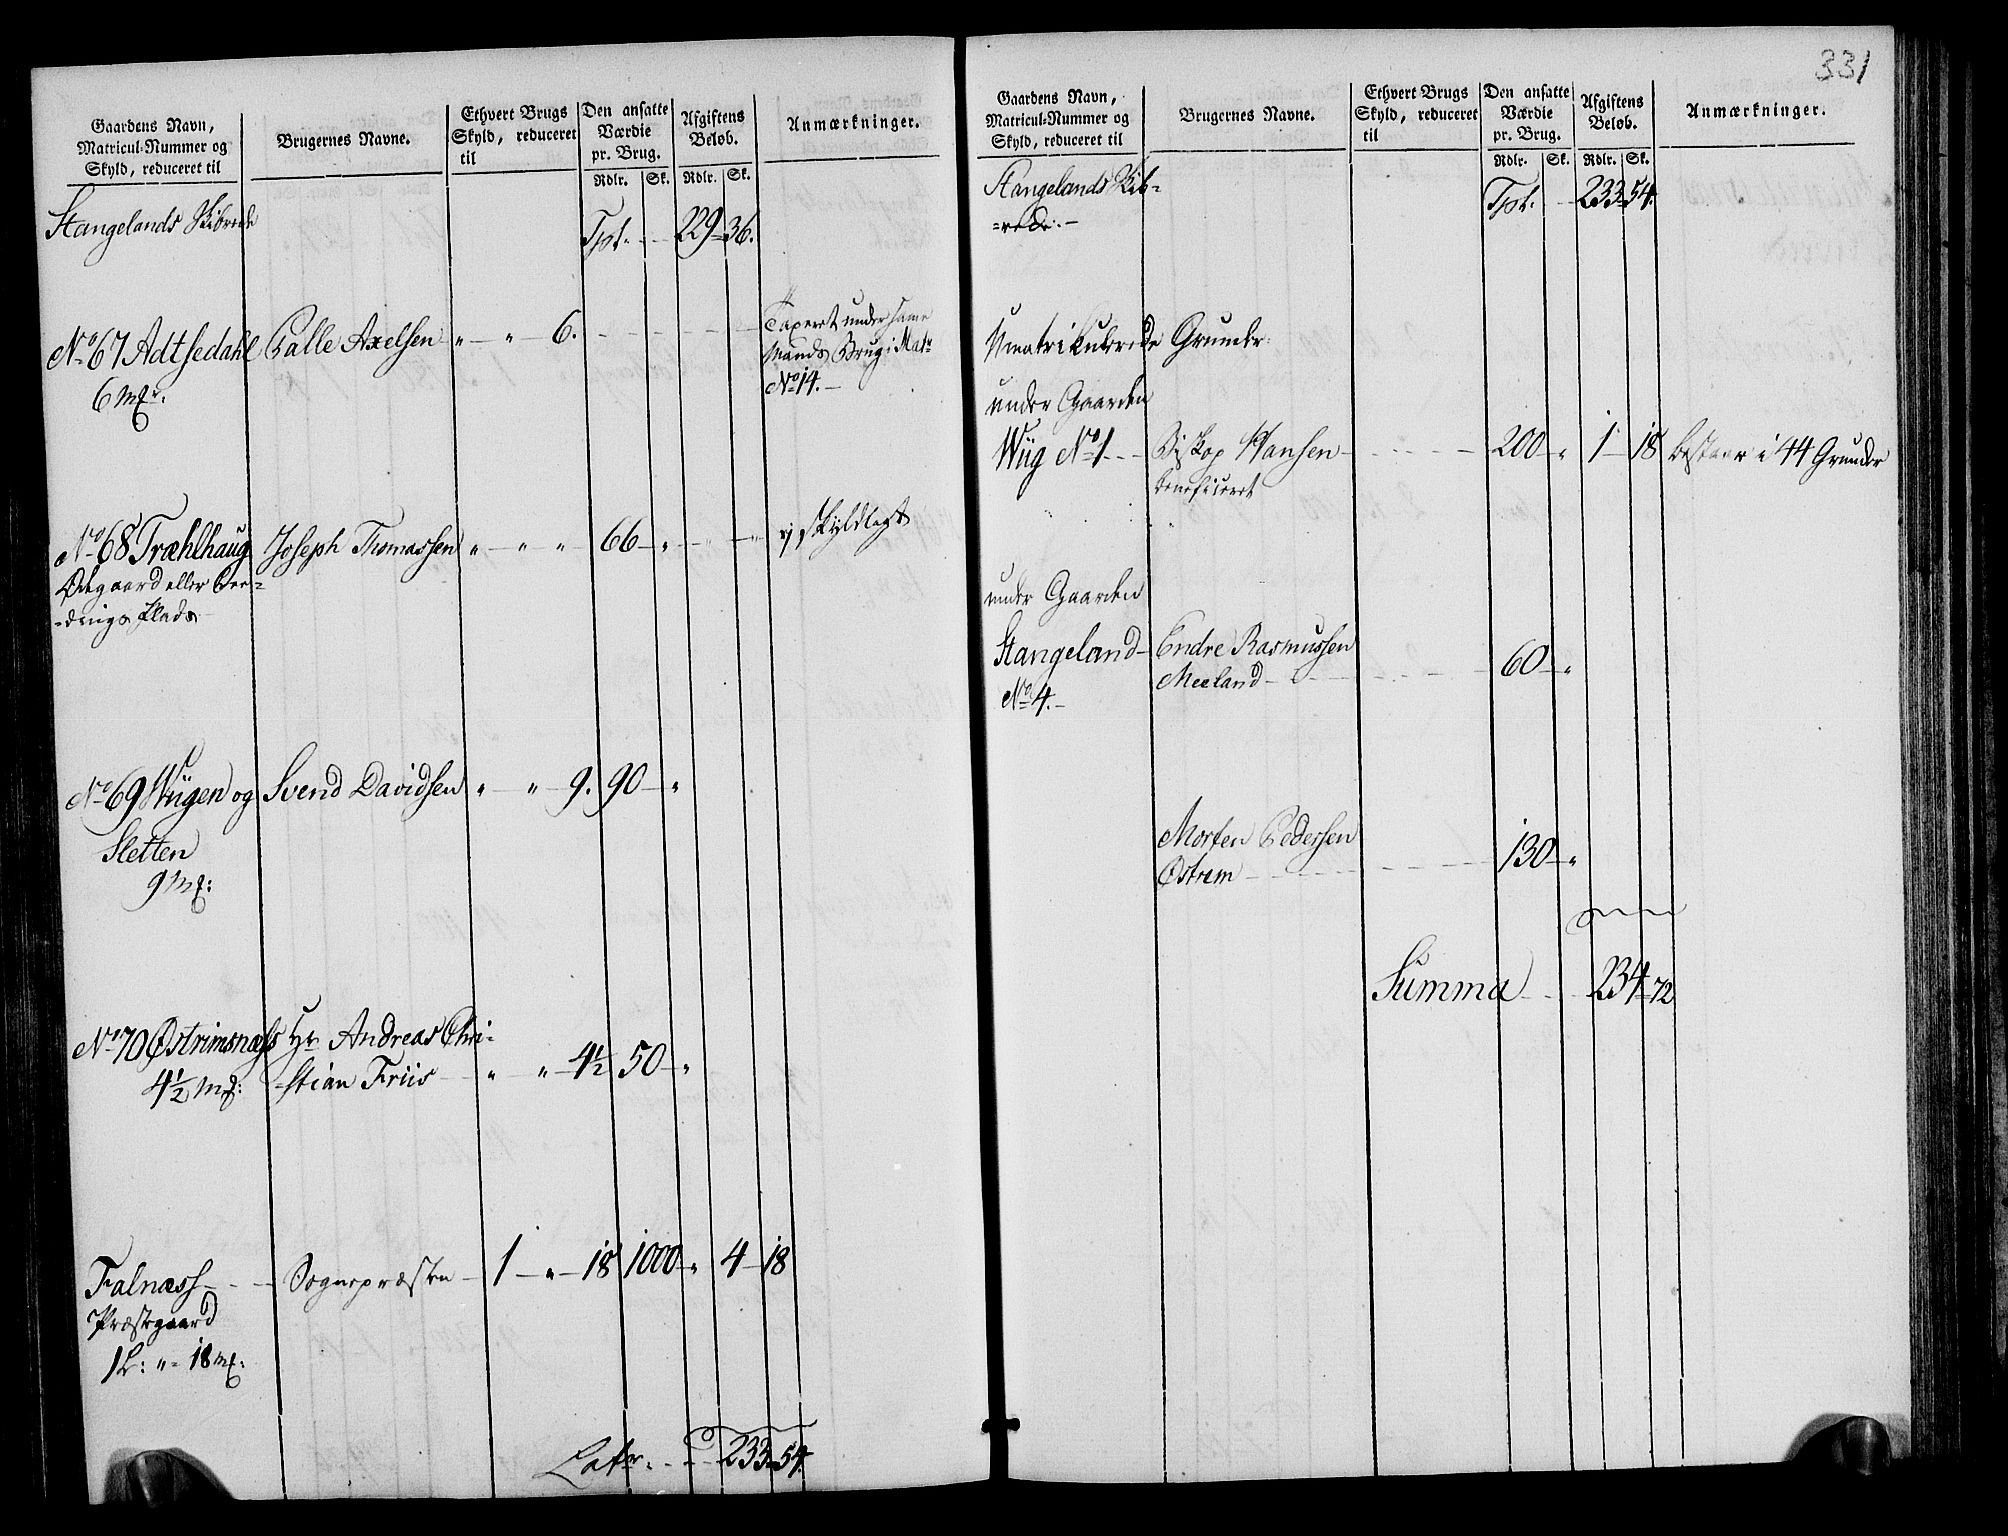 331
Gaardens Navn, Matricul-Nummer og Skyld, reduceret til
Brugernes Navne.
Ethvert Brugs Skyld, reduceret til
Den ansatte Værdie pr. Brug.
Afgiftens Beløb.
Anmærkninger.
Rdlr. Sk. Rdlr. Sk.
Stangelands Skibrede Tpt. 229 36.
No 67 Adtsedahl Palle Axelsen " " 6. Taxeret under samme
6 mk. Mands Brug i Matr
No 14.
No 68 Træhlhaug Joseph Thomassen " " " 66 " " " ej skyldlagt
Ødegaard eller
Plads
No 69 Wiigen og Svend Davidsen " " 9. 90 "
Sletten
9 mk:
No 70 Østrimsnæss Hr Andreas Chri-
4½ mk: -stian Friis " " 4½ 50 "
Falnæss Sognepræsten 1 " 18 1000 " 4 18
Præstegaard
1 L: " 18 mk:
Latr. 233 54.
Gaardens Navn, Matricul-Nummer og Skyld, reduceret til
Brugernes Navne.
Ethvert Brugs Skyld, reduceret til
Den ansatte Værdie pr. Brug.
Afgiftens Beløb.
Anmærkninger.
Rdlr. Sk. Rdlr. Sk.
Stangelands Skib= Tpt. 233 54.
=rede.
Umatrikulerede Grunde:
under Gaarden
Wiig No 1 Biskop Hansen 200 " 1 18 bestaar i 44 Grunde
beneficeret
under Gaarden
Stangeland Endre Rasmussen
No 4. Meeland 60 "
Morten Pedersen
Østrem 130 "
Summa 234 72